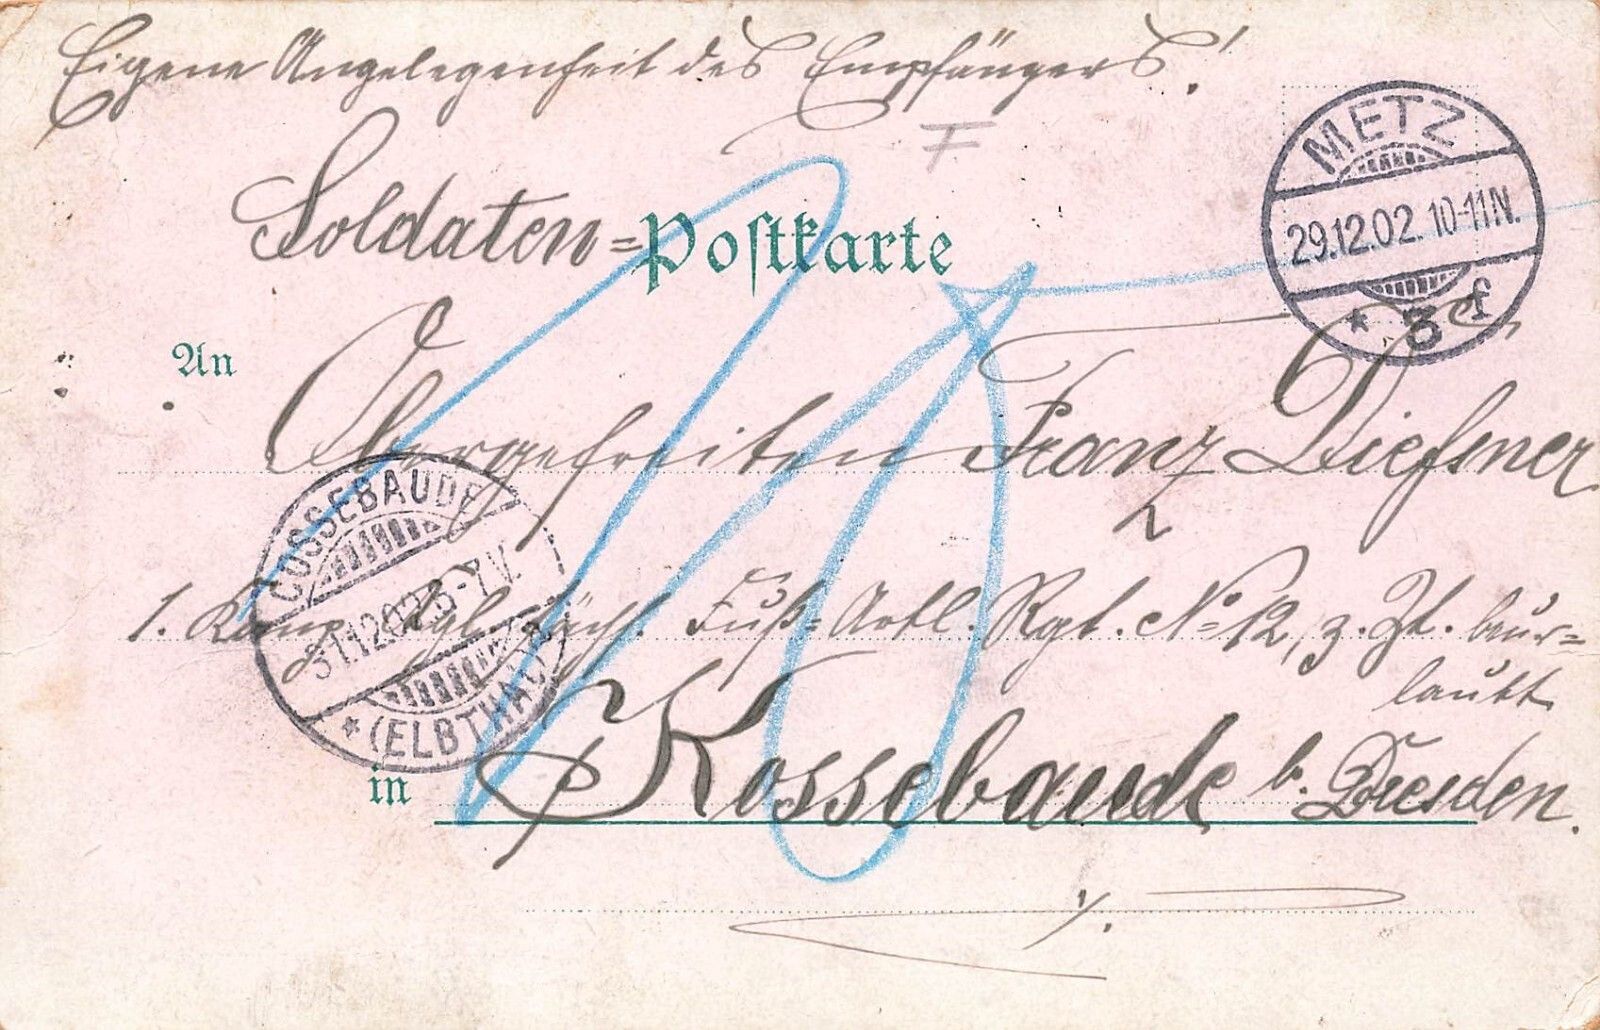 Eigene Angelegenheit des Empfängers!
F
Soldaten=Postkarte
METZ
29.12.02. 10-11N.
* 3 f
An
Obergefreiten Franz Dießner
COSSEBAUDE
31.12.02. 6-7V.
* (ELBTHAL)
1. Komp. Kgl. Sächs. Fuß=Artl. Rgt. No 12, z. Zt. beur=
laubt
in Kossebaude b. Dresden.
10